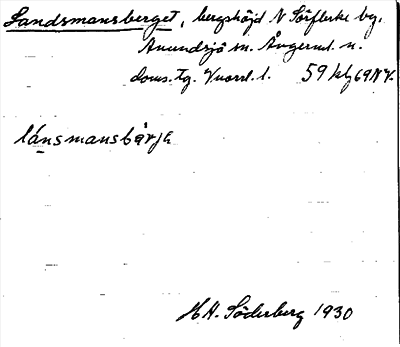 Landsmansberget, bergshöjd N Sörflärke by,
Anundsjö sn. Ångerml. n.
doms. tg. Vnorrl. l. 59 kbl 69 NV.
lánsmansbärje
H.H. Söderberg 1930